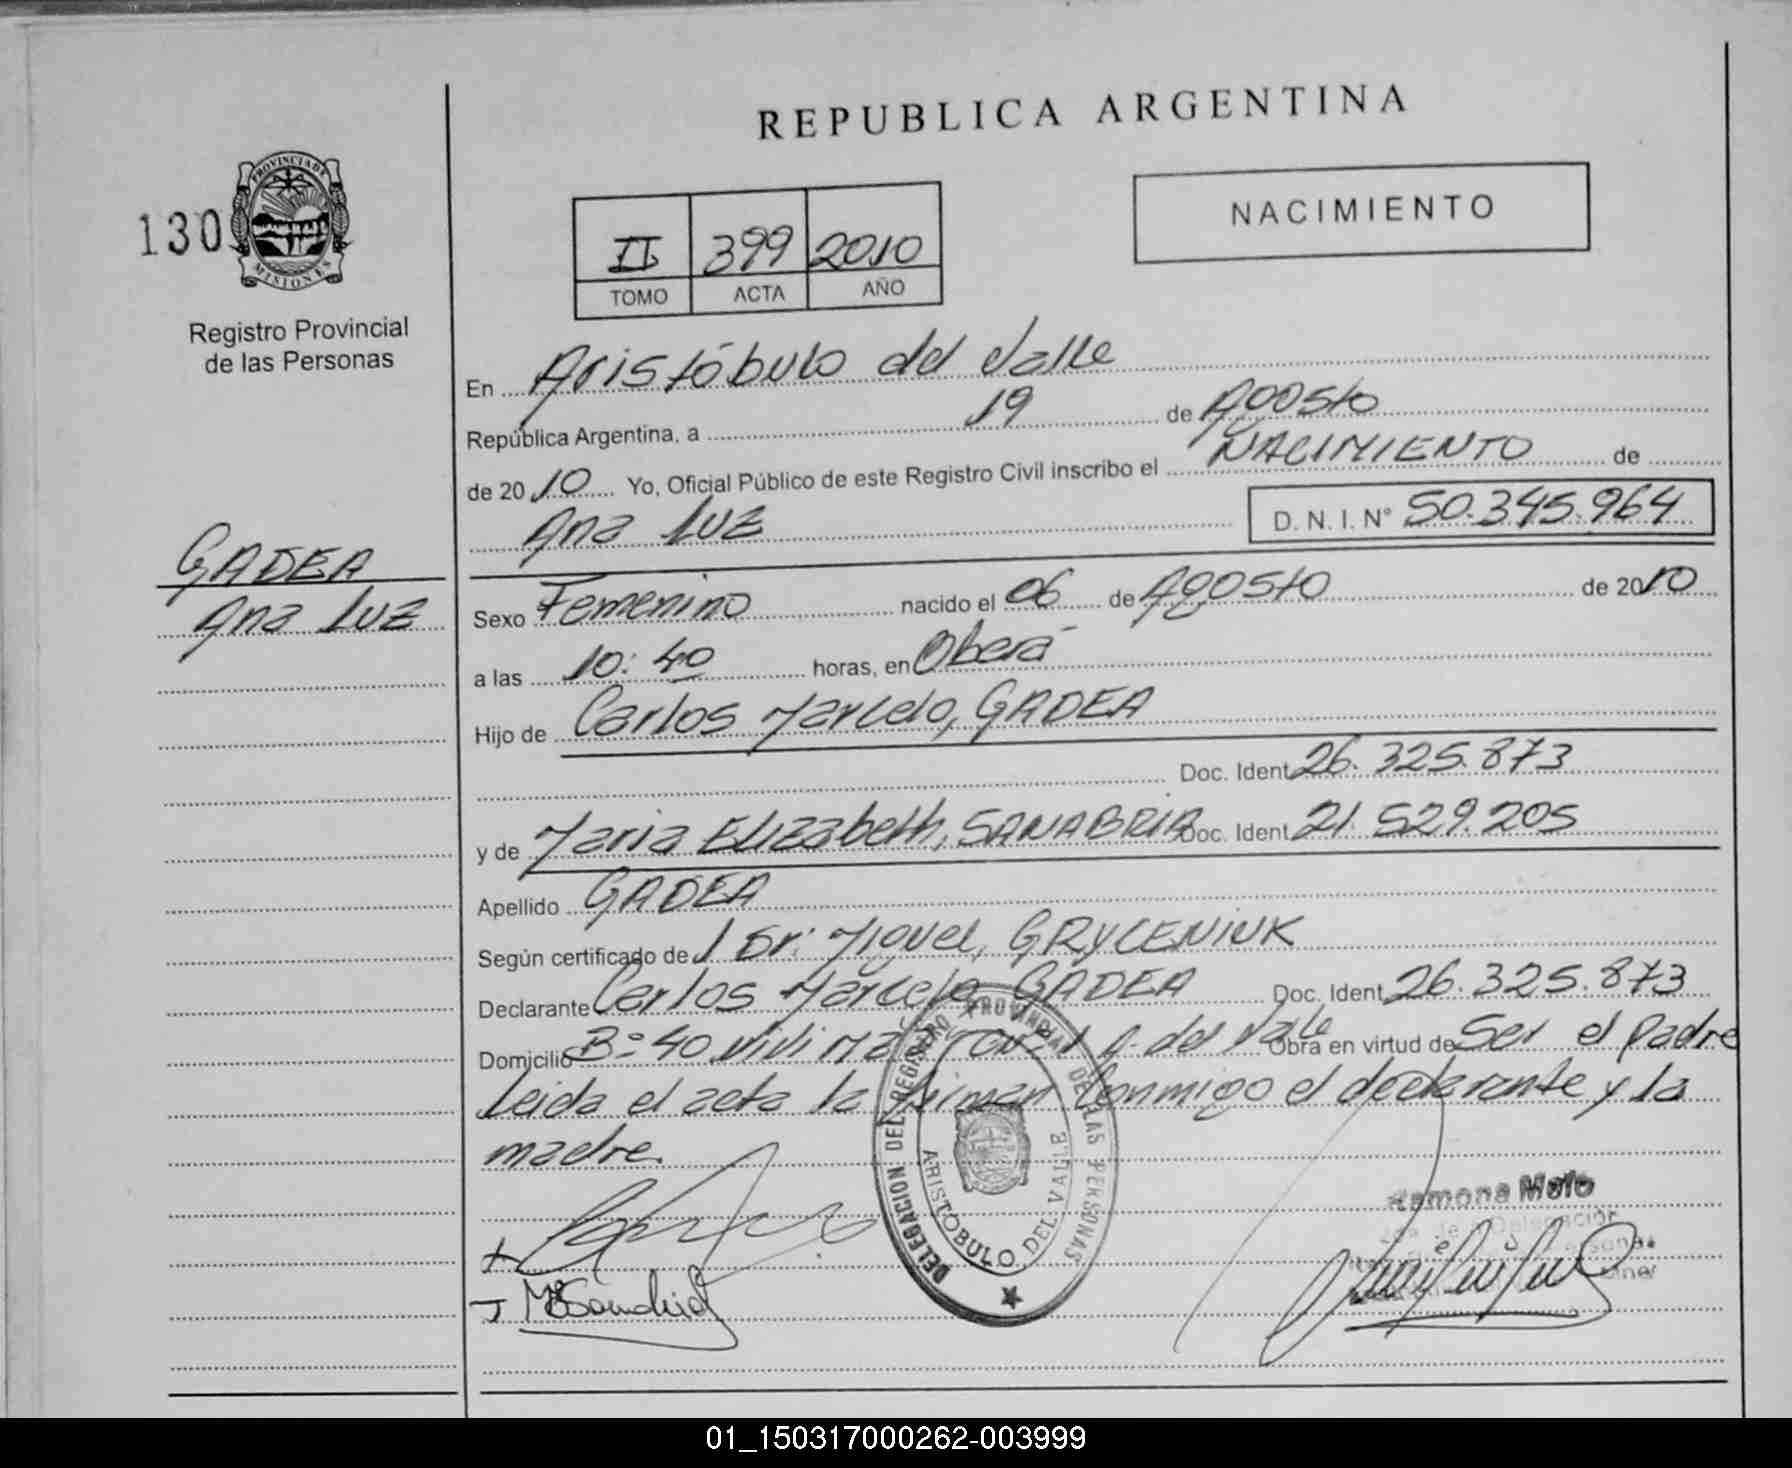 REPUBLICA ARGENTINA
NACIMIENTO
130
PROVINCIA DE
MISIONES
Registro Provincial
de las Personas
II 399 2010
TOMO ACTA AÑO
En Aristóbulo del Valle
República Argentina, a 19 de Agosto
de 2010 Yo, Oficial Público de este Registro Civil inscribo el NACIMIENTO de
Ana Luz D. N. I. N° 50.345.964
GADEA
Ana Luz
Sexo Femenino nacido el 06 de Agosto de 2010
a las 10:40 horas, en Oberá
Hijo de Carlos Marcelo, GADEA
Doc. Ident 26.325.873
y de Maria Elizabeth, SANABRIA Doc. Ident 21.529.205
Apellido GADEA
Según certificado de / Dr: Miguel, GRYCENIUK
Declarante Carlos Marcelo GADEA Doc. Ident 26.325.873
Domicilio B° 40 Vivi A. del Valle Obra en virtud de Ser el padre
Leida el acta la firman conmigo el declarante y la
madre.
DELEGACION DEL REGISTRO PROVINCIAL DE LAS PERSONAS
ARISTOBULO DEL VALLE
Ramona Melo
01_150317000262-003999